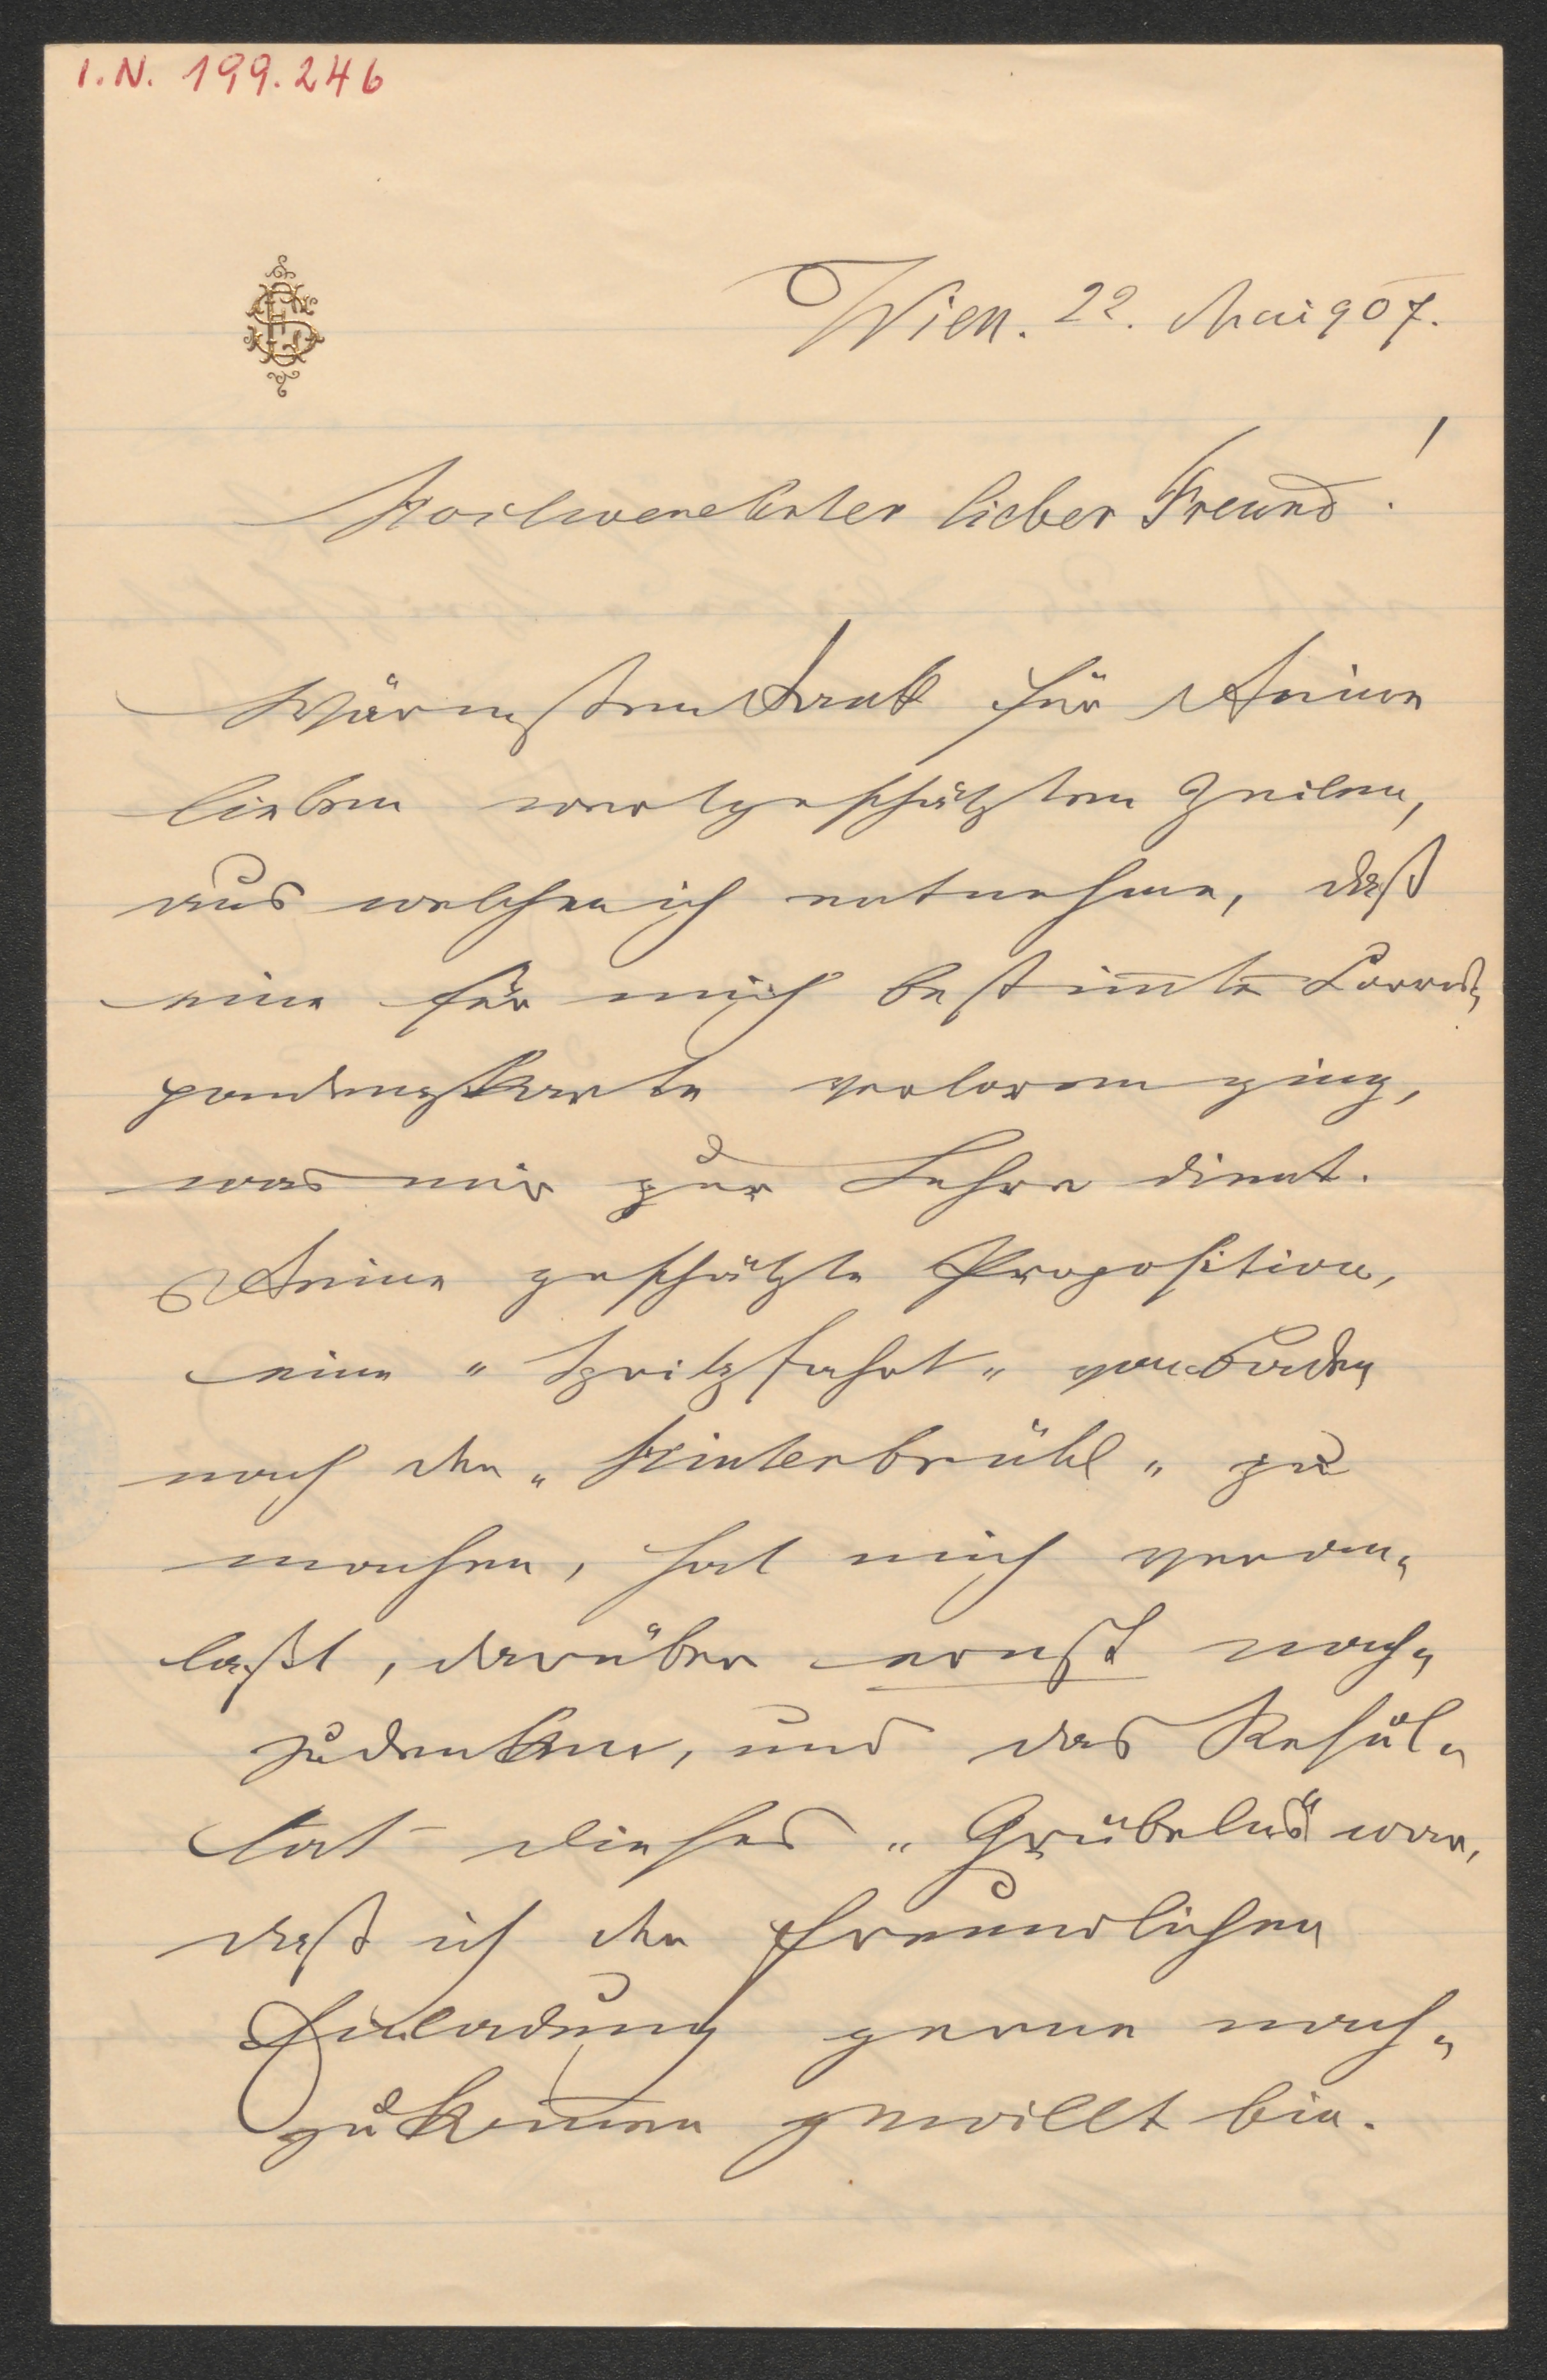 I.N. 199.246
Wien. 22. Mai 907.
Hochverehrter lieber Freund!
Wärmsten Dank für Deine
lieben wertgeschätzten Zeilen,
aus welchen ich entnehme, daß
eine für mich bestim̄te Corres„
pondenzkarte verloren ging,
was mir zur Lehre dient.
Deine geschätzte Proposition,
eine „Spritzfahrt" von Baden
nach der „Hinterbrühl" zu
machen, hat mich veran„
laßt, darüber ernst nach„
zudenken, und das Resul„
tat dieses „Grübelns" war,
daß ich der freundlichen
Einladung gerne nach„
zukom̄en gewillt bin.